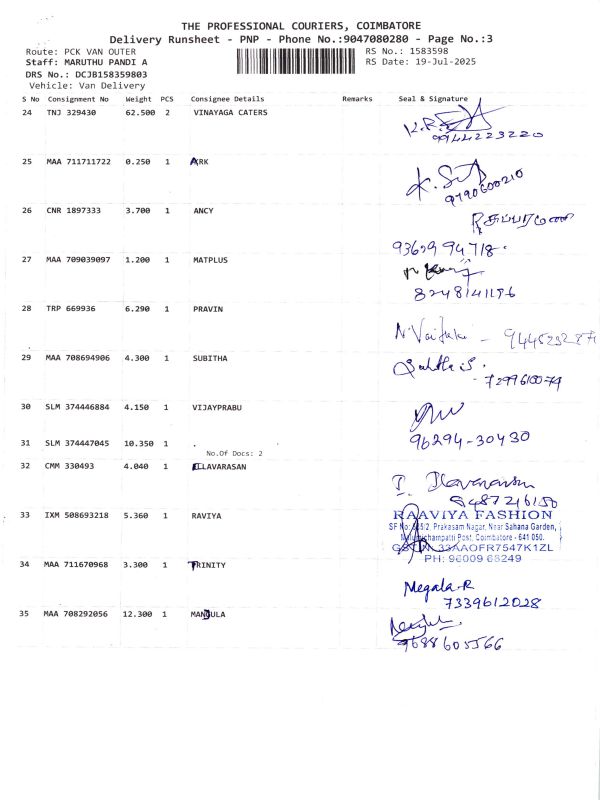 THE PROFESSIONAL COURIERS, COIMBATORE
Delivery Runsheet - PNP - Phone No.:9047080280 - Page No.:3
Route: PCK VAN OUTER RS No.: 1583598
Staff: MARUTHU PANDI A RS Date: 19-Jul-2025
DRS No.: DCJB158359803
Vehicle: Van Delivery
S No Consignment No Weight PCS Consignee Details Remarks Seal & Signature
24 TNJ 329430 62.500 2 VINAYAGA CATERS
9944223220
25 MAA 711711722 0.250 1 ARK
9790600210
26 CNR 1897333 3.700 1 ANCY
93629 94718.
27 MAA 709039097 1.200 1 MATPLUS
8248141196
28 TRP 669936 6.290 1 PRAVIN
29 MAA 708694906 4.300 1 SUBITHA
- 7299610079
30 SLM 374446884 4.150 1 VIJAYPRABU
96294-30430
31 SLM 374447045 10.350 1 .
No.Of Docs: 2
32 CMM 330493 4.040 1 ILLAVARASAN
I. Ilavarasan
9487216150
33 IXM 508693218 5.360 1 RAVIYA
RAAVIYA FASHION
Prakasam Nagar, Near Sahana Garden,
Post, Coimbatore - 641 050.
33AAOFR7547K1ZL
PH: 96009 68249
34 MAA 711670968 3.300 1 TRINITY
Megala.R
7339612028
35 MAA 708292056 12.300 1 MANJULA
9688605566